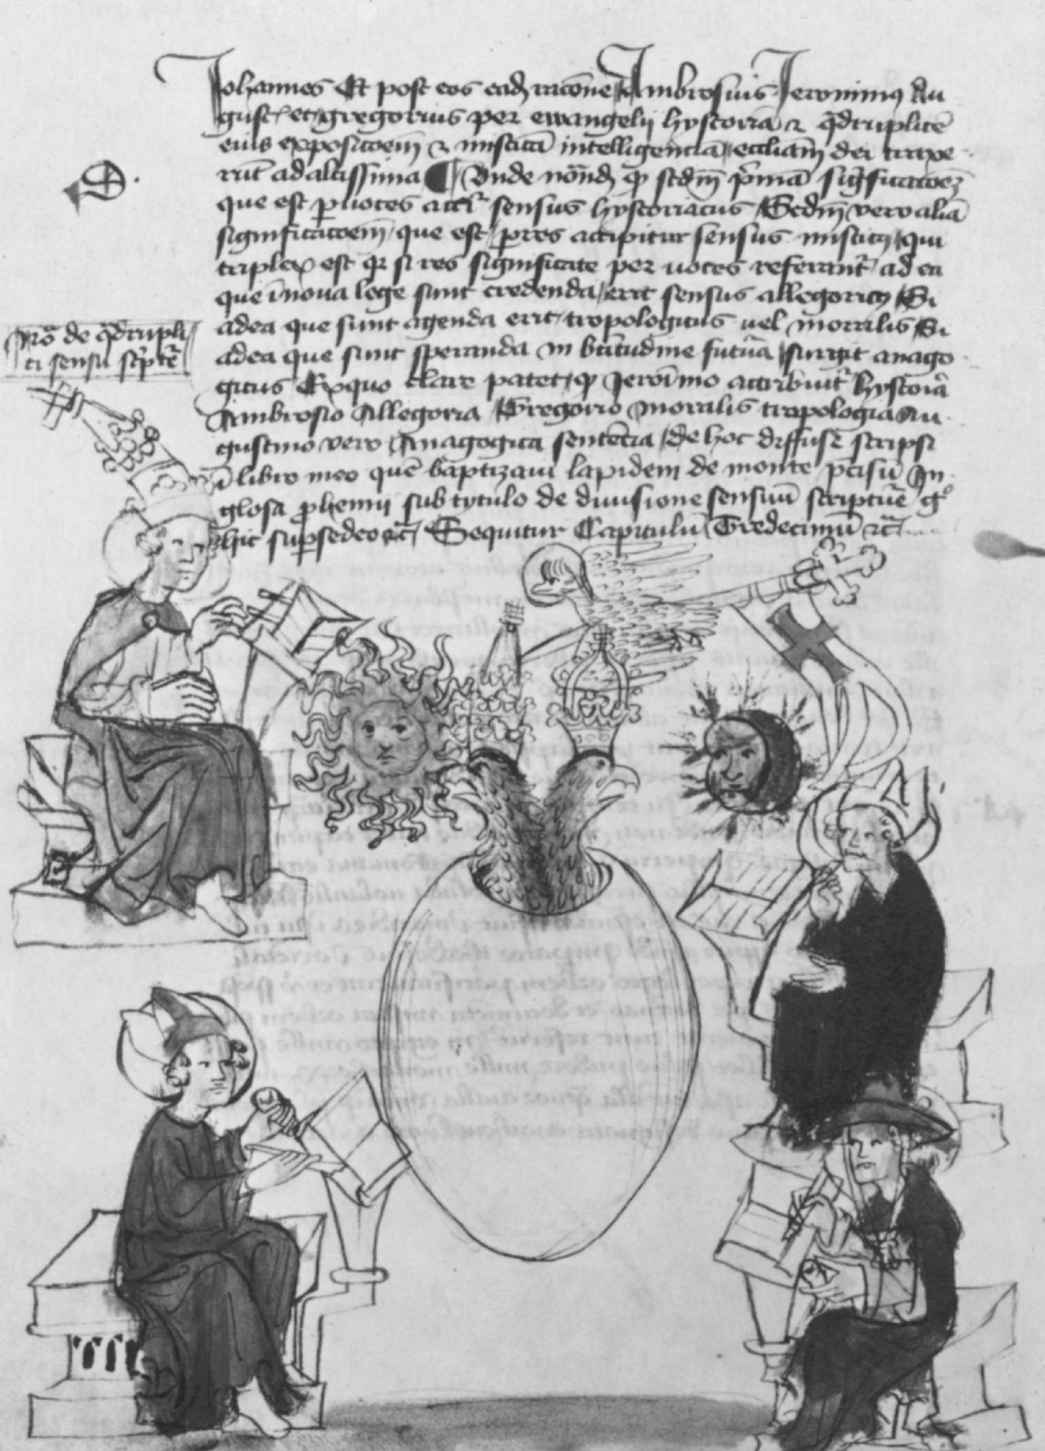 Iohannes Et post eos eadē racōne Ambrosius Ieronimus Au
gustꝰ et gregorius per ewangelii hystoriā ⁊ qᷓdruplicē
eius exposicōem ⁊ misticā intelligenciā eccliam dei traxe
rūt ad altissima ¶ Unde nōnd qꝫ scdm p̄mā significacōem
que est p uoces accr̄ sensus hystoriacus Scdm vero aliā
significacōem que est p res accipitur sensus misticꝰ qui
triplex est qr si res significate per uoces referantr̄ ad ea
que ī noua lege sunt credenda erit sensus allegoricꝰ Si
adea que sunt agenda erit tropologicus uel moralis Si
adea que sunt speranda in btitudine futura surgit anago
gicus Ex quo clare patet qꝫ Ieronimo attribuitr̄ hystoria
Ambrosio Allegoria Gregorio moralis tropologia Au
gustino vero Anagogica sentēcia de hoc diffuse scripsi
ī libro meo quē baptizaui lapidem de monte p̄cisū In
glosa prohemii sub tytulo de diuisione sensuū scripture
hic supsedeo ⁊c Sequitur Capitulū Tredecimū ⁊c
Nōᷓ de qᷓdrupli
ci sensu sc̄pte